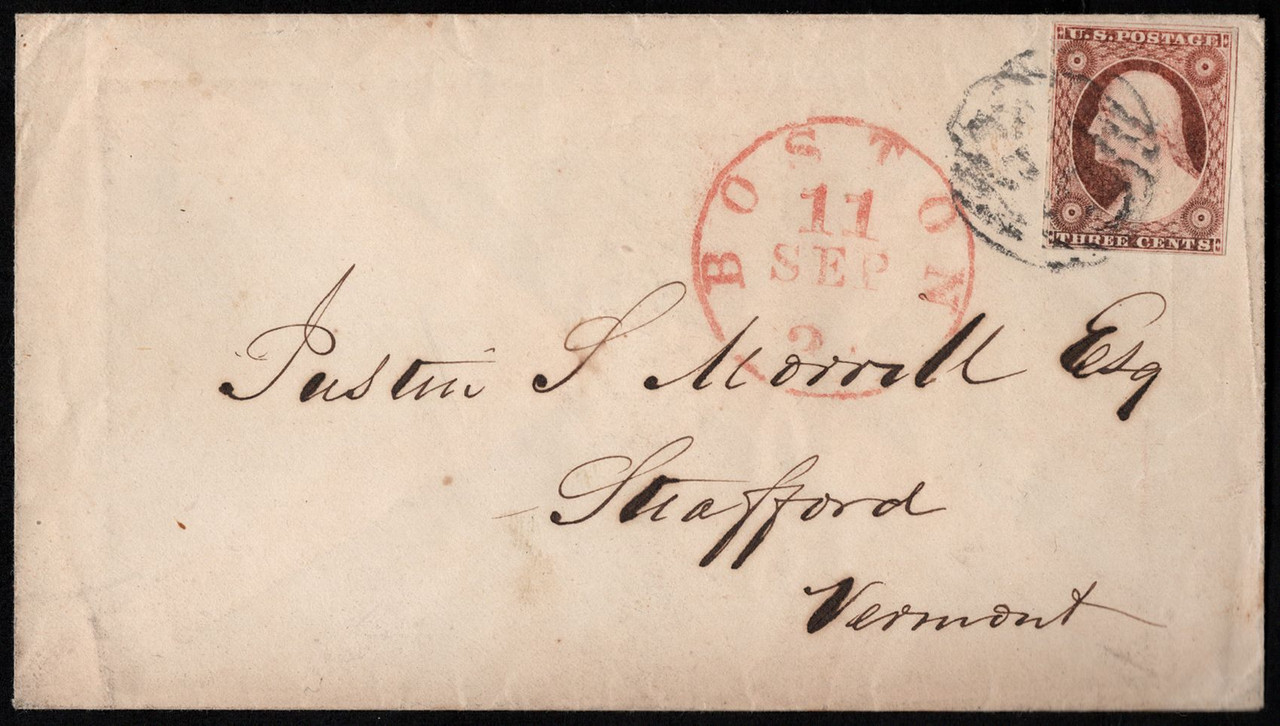 U.S.POSTAGE
THREE CENTS
BOSTON
11
SEP
Justin S Morrill Esq
Strafford
Vermont